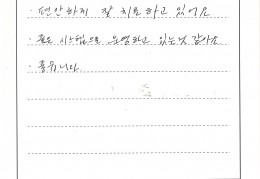 · 편안하게 잘 치료하고 있어요
· 좋은 시스템으로 운영하고 있는것 같아요
· 좋습니다